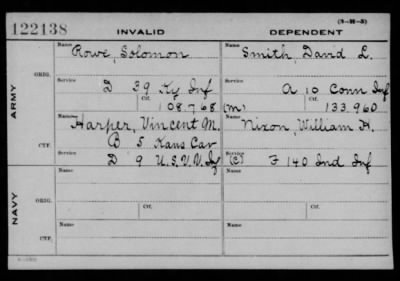 (3-H-3)
122138 INVALID DEPENDENT
Name Name
Rowe, Solomon Smith, David L.
ORIG. Service Service
D 39 Ky Inf A 10 Conn Inf
Ctf. Ctf.
108.768 (m) 133.960
ARMY
Name Name
Harper, Vincent M. Nixon, William H.
CTF. Service Service
B 5 Kans Cav
D 9 U.S.V.V. Inf (C) F 140 Ind Inf
Name Name
ORIG. Ctf. Ctf.
NAVY
Name Name
CTF.